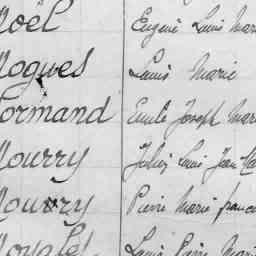 Noël Eugène Louis Mari
Nogues Louis Marie
Normand Emile Joseph Mar
Nourry Julien Louis Jean
Nourry Pierre Marie franc
Noyalet Louis Pierre Mari